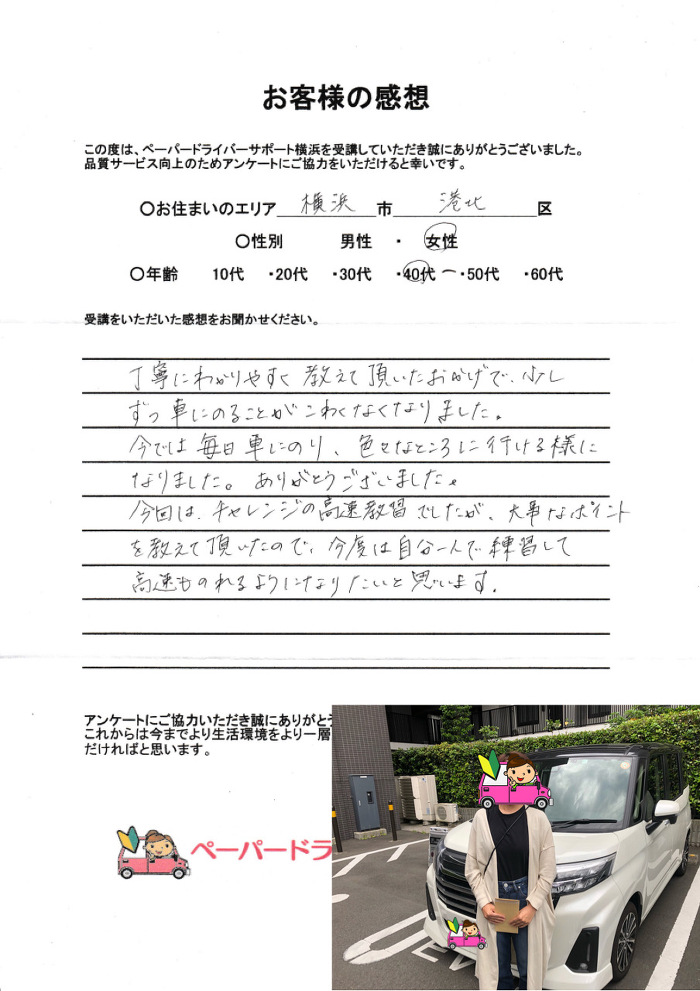 お客様の感想
この度は、ペーパードライバーサポート横浜を受講していただき誠にありがとうございました。
品質サービス向上のためアンケートにご協力をいただけると幸いです。
〇お住まいのエリア 横浜 市 港北 区
〇性別 男性 ・ 女性
〇年齢 10代 ・20代 ・30代 ・40代 ～・50代 ・60代
受講をいただいた感想をお聞かせください。
丁寧にわかりやすく教えて頂いたおかげで、少し
ずつ車にのることがこわくなくなりました。
今では毎日車にのり、色々なところに行ける様に
なりました。ありがとうございました。
今回は、チャレンジの高速教習でしたが、大事なポイント
を教えて頂いたので、今度は自分一人で練習して
高速ものれるようになりたいと思います。
アンケートにご協力いただき誠にありがとう
これからは今までより生活環境をより一層
だければと思います。
ペーパードラ